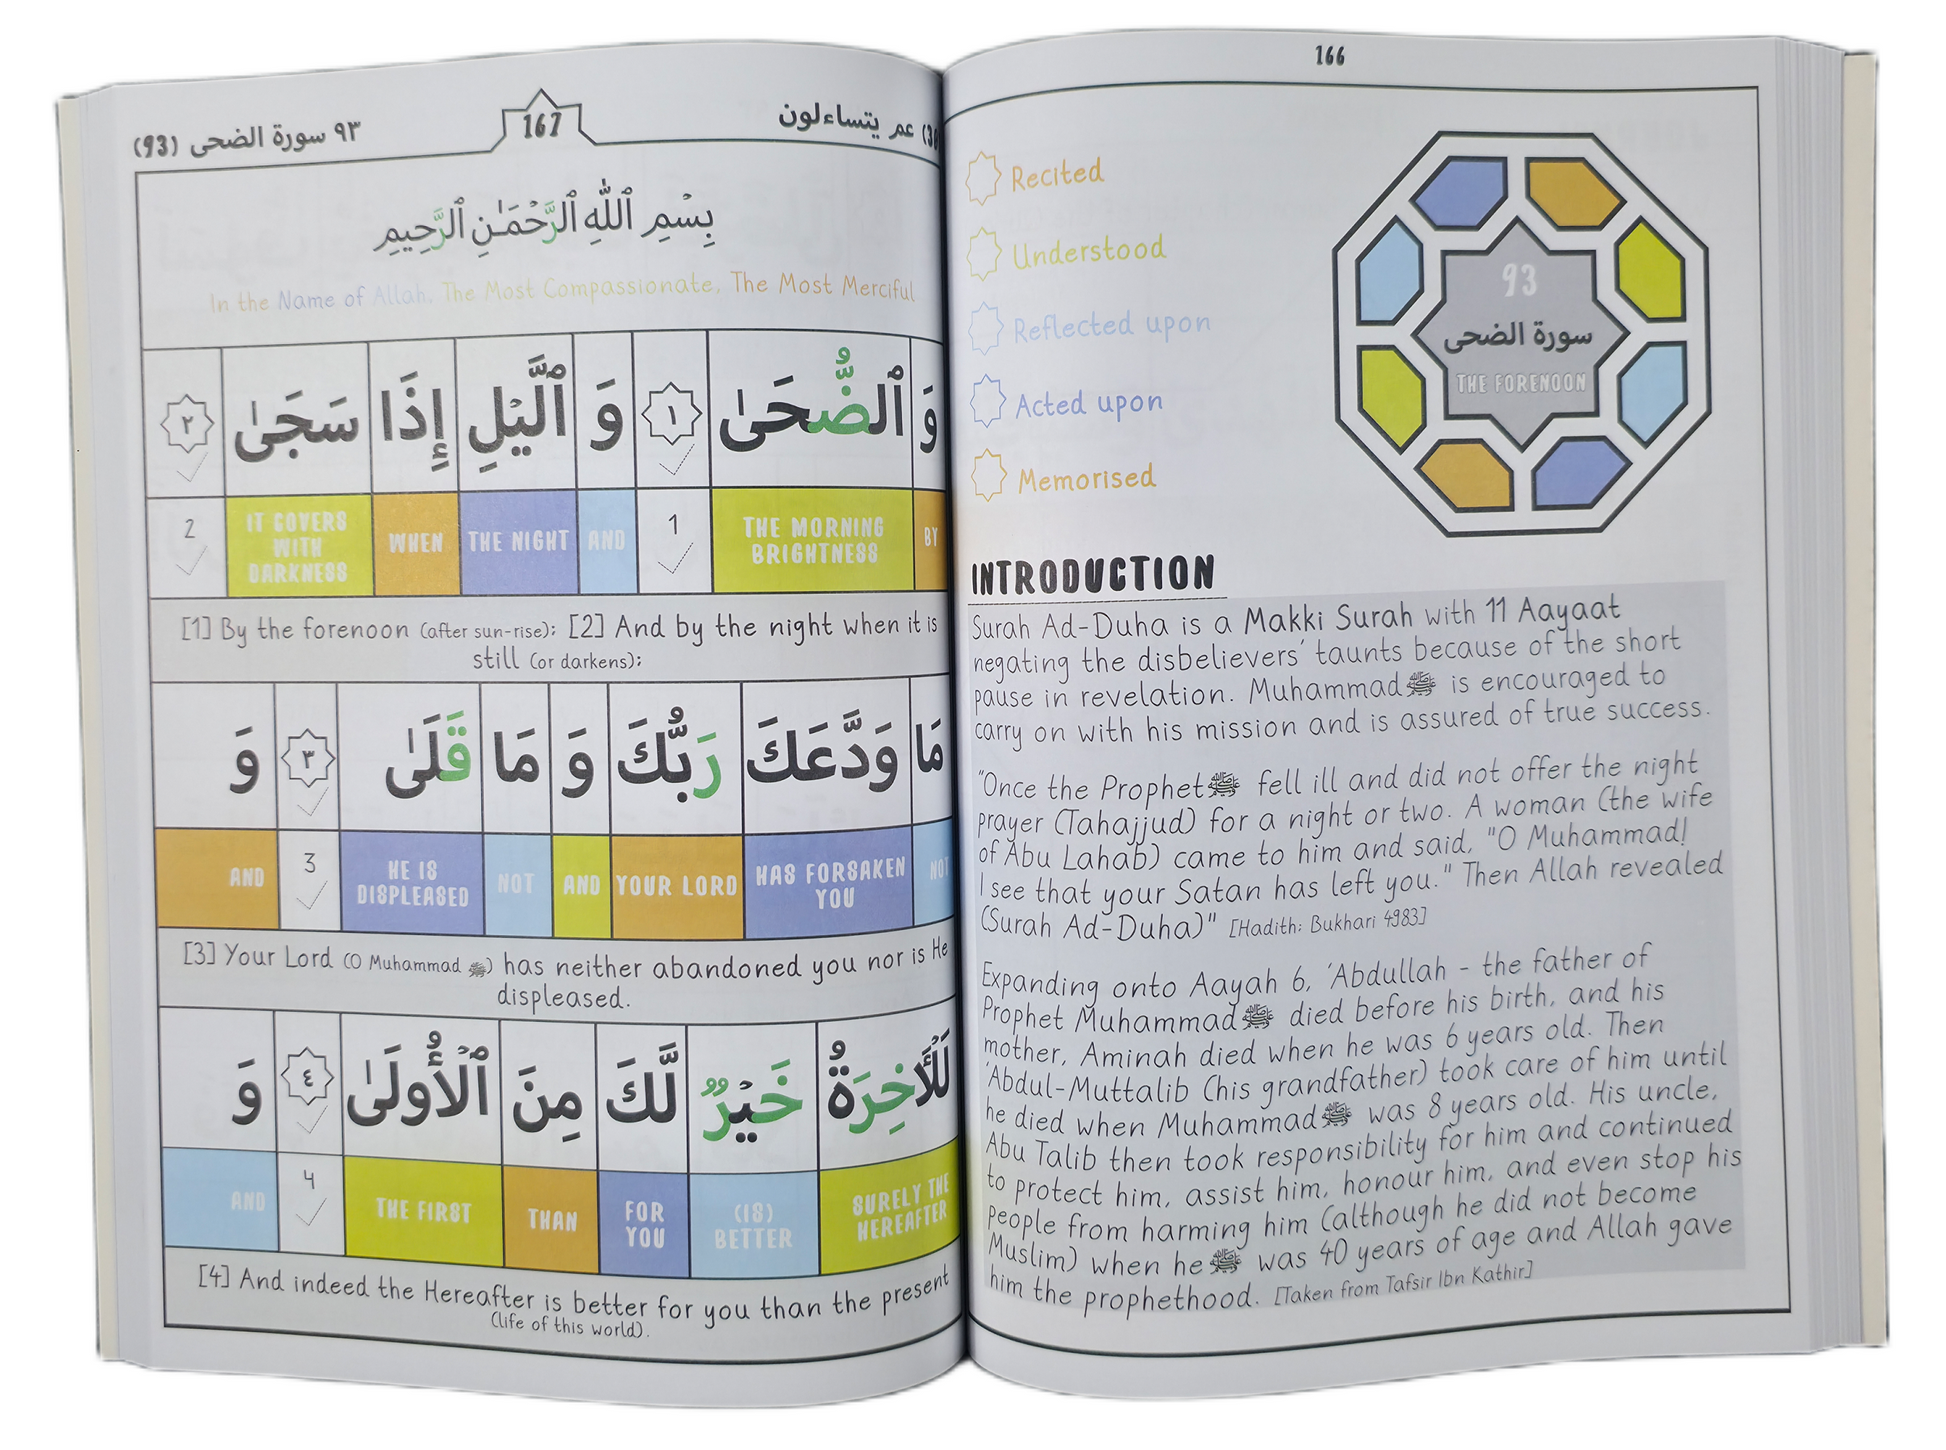 166
Recited
Understood
Reflected upon
Acted upon
Memorised
93
سورة الضحى
THE FORENOON
INTRODUCTION
Surah Ad-Duha is a Makki Surah with 11 Aayaat
negating the disbelievers' taunts because of the short
pause in revelation. Muhammad ﷺ is encouraged to
carry on with his mission and is assured of true success.
"Once the Prophet ﷺ fell ill and did not offer the night
prayer (Tahajjud) for a night or two. A woman (the wife
of Abu Lahab) came to him and said, "O Muhammad!
I see that your Satan has left you." Then Allah revealed
(Surah Ad-Duha)" [Hadith: Bukhari 4983]
Expanding onto Aayah 6, 'Abdullah - the father of
Prophet Muhammad ﷺ died before his birth, and his
mother, Aminah died when he was 6 years old. Then
'Abdul-Muttalib (his grandfather) took care of him until
he died when Muhammad ﷺ was 8 years old. His uncle,
Abu Talib then took responsibility for him and continued
to protect him, assist him, honour him, and even stop his
people from harming him (although he did not become
Muslim) when he ﷺ was 40 years of age and Allah gave
him the prophethood. [Taken from Tafsir Ibn Kathir]
عم يتساءلون
167
٩٣ سورة الضحى (93)
بِسْمِ ٱللَّهِ ٱلرَّحْمَـٰنِ ٱلرَّحِيمِ
In the Name of Allah, The Most Compassionate, The Most Merciful
وَ ٱلضُّحَىٰ ١ وَ ٱلَّيْلِ إِذَا سَجَىٰ ٢
BY
THE MORNING
BRIGHTNESS
1
AND
THE NIGHT
WHEN
IT COVERS
WITH
DARKNESS
2
[1] By the forenoon (after sun-rise); [2] And by the night when it is
still (or darkens);
مَا وَدَّعَكَ رَبُّكَ وَ مَا قَلَىٰ ٣ وَ
NOT
HAS FORSAKEN
YOU
YOUR LORD
AND
NOT
HE IS
DISPLEASED
3
AND
[3] Your Lord (O Muhammad ﷺ) has neither abandoned you nor is He
displeased.
لَلْأَخِرَةُ خَيْرٌ لَّكَ مِنَ ٱلْأُولَىٰ ٤ وَ
SURELY THE
HEREAFTER
(IS)
BETTER
FOR
YOU
THAN
THE FIRST
4
AND
[4] And indeed the Hereafter is better for you than the present
(life of this world).